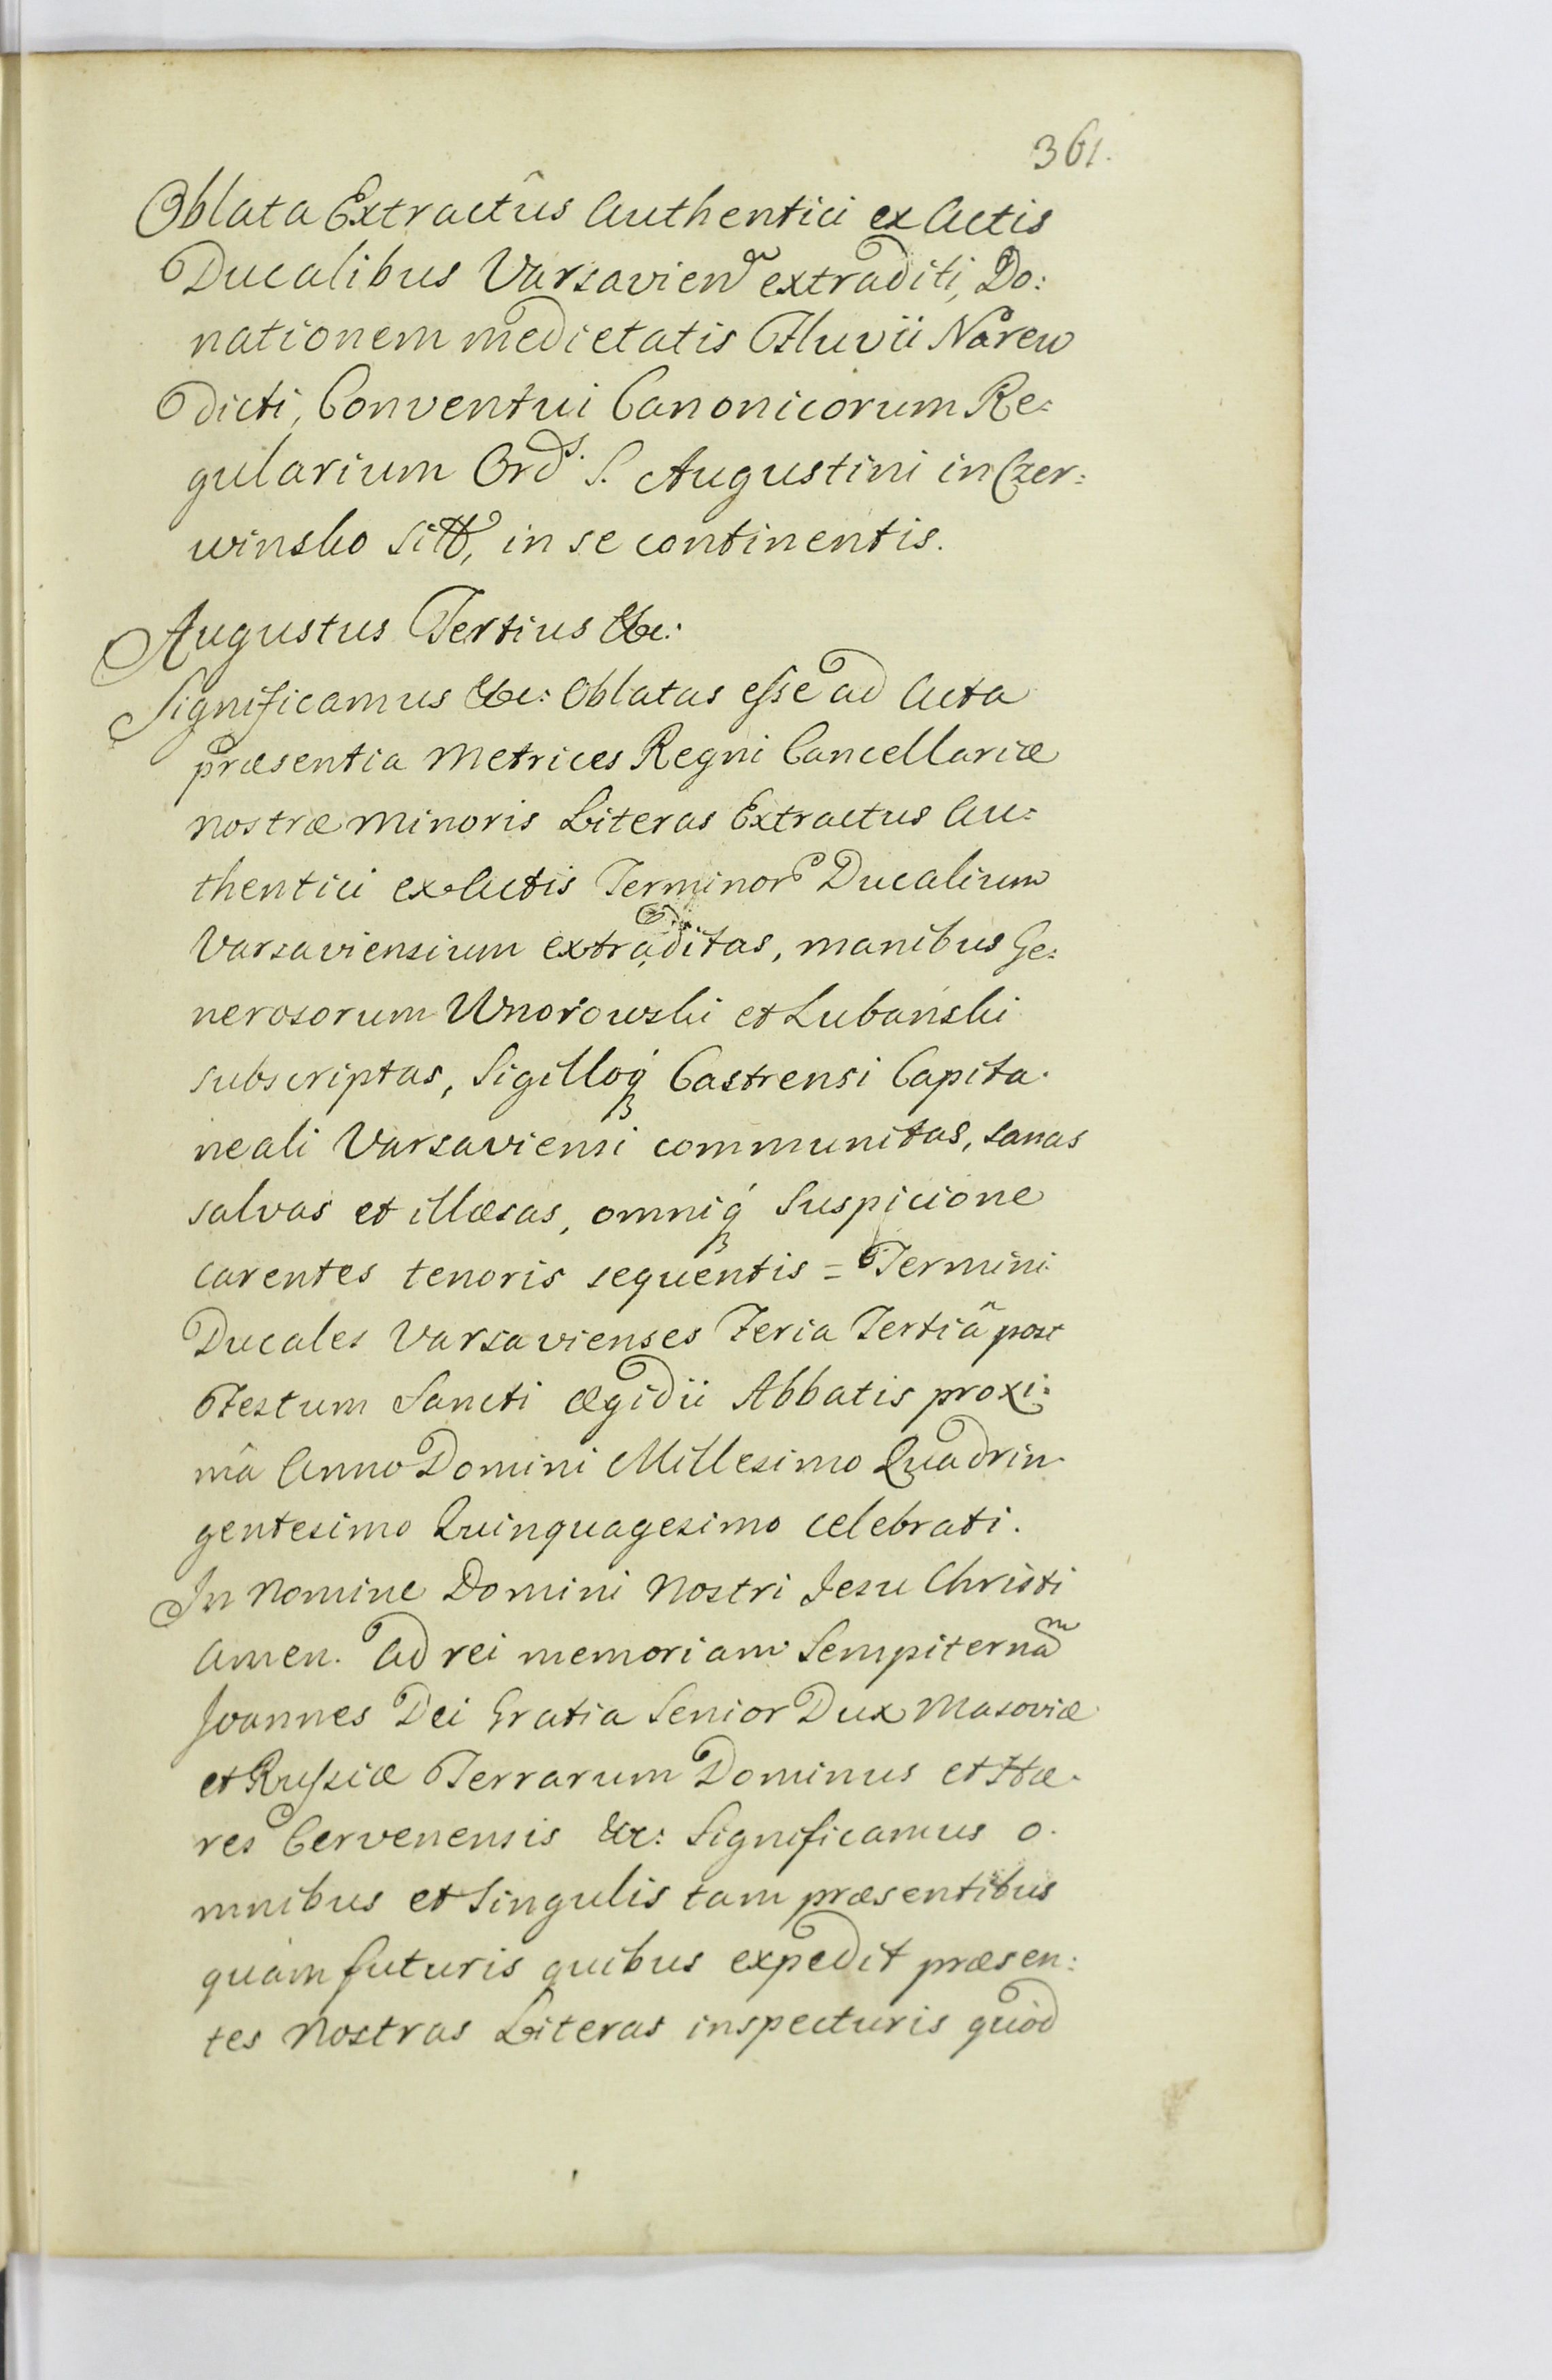 361.
Oblata Extractûs Authentici ex Actis
Ducalibus Varsavien extraditi, Do:
nationem medietatis Fluvii Narew
dicti, Conventui Canonicorum Re:
gularium Ord.s S. Augustini in Czer:
winsko in se continentis.
Augustus Tertius &c:
Significamus &c: Oblatas esse ad Acta
præsentia Metrices Regni Cancellariæ
nostræ Minoris Literas Extractus Au:
thentici ex Actis Terminor Ducalium
Varsaviensium extraditas, manibus Ge:
nerosorum Unorowski et Lubański
subscriptas, Sigilloq́ Castrensi Capita.
neali Varsaviensi communitas, sanas
salvas et illæsas, omniq́ Suspicione
carentes tenoris sequentis = Termini
Ducales Varsavienses Feria Tertiâ post
Festum Sancti Ægidii Abbatis proxi:
mâ Anno Domini Millesimo Quadrin.
gentesimo Quinquagesimo celebrati.
In Nomine Domini Nostri Jesu Christi
Amen. Ad rei memoriam Sempiternam
Joannes Dei Gratia Senior Dux Masoviæ
et Russiæ Terrarum Dominus et Hæ.
res Cervenensis &c: Significamus o.
mnibus et Singulis tam præsentibus
quàm futuris quibus expedit præsen:
tes Nostras Literas inspecturis quòd